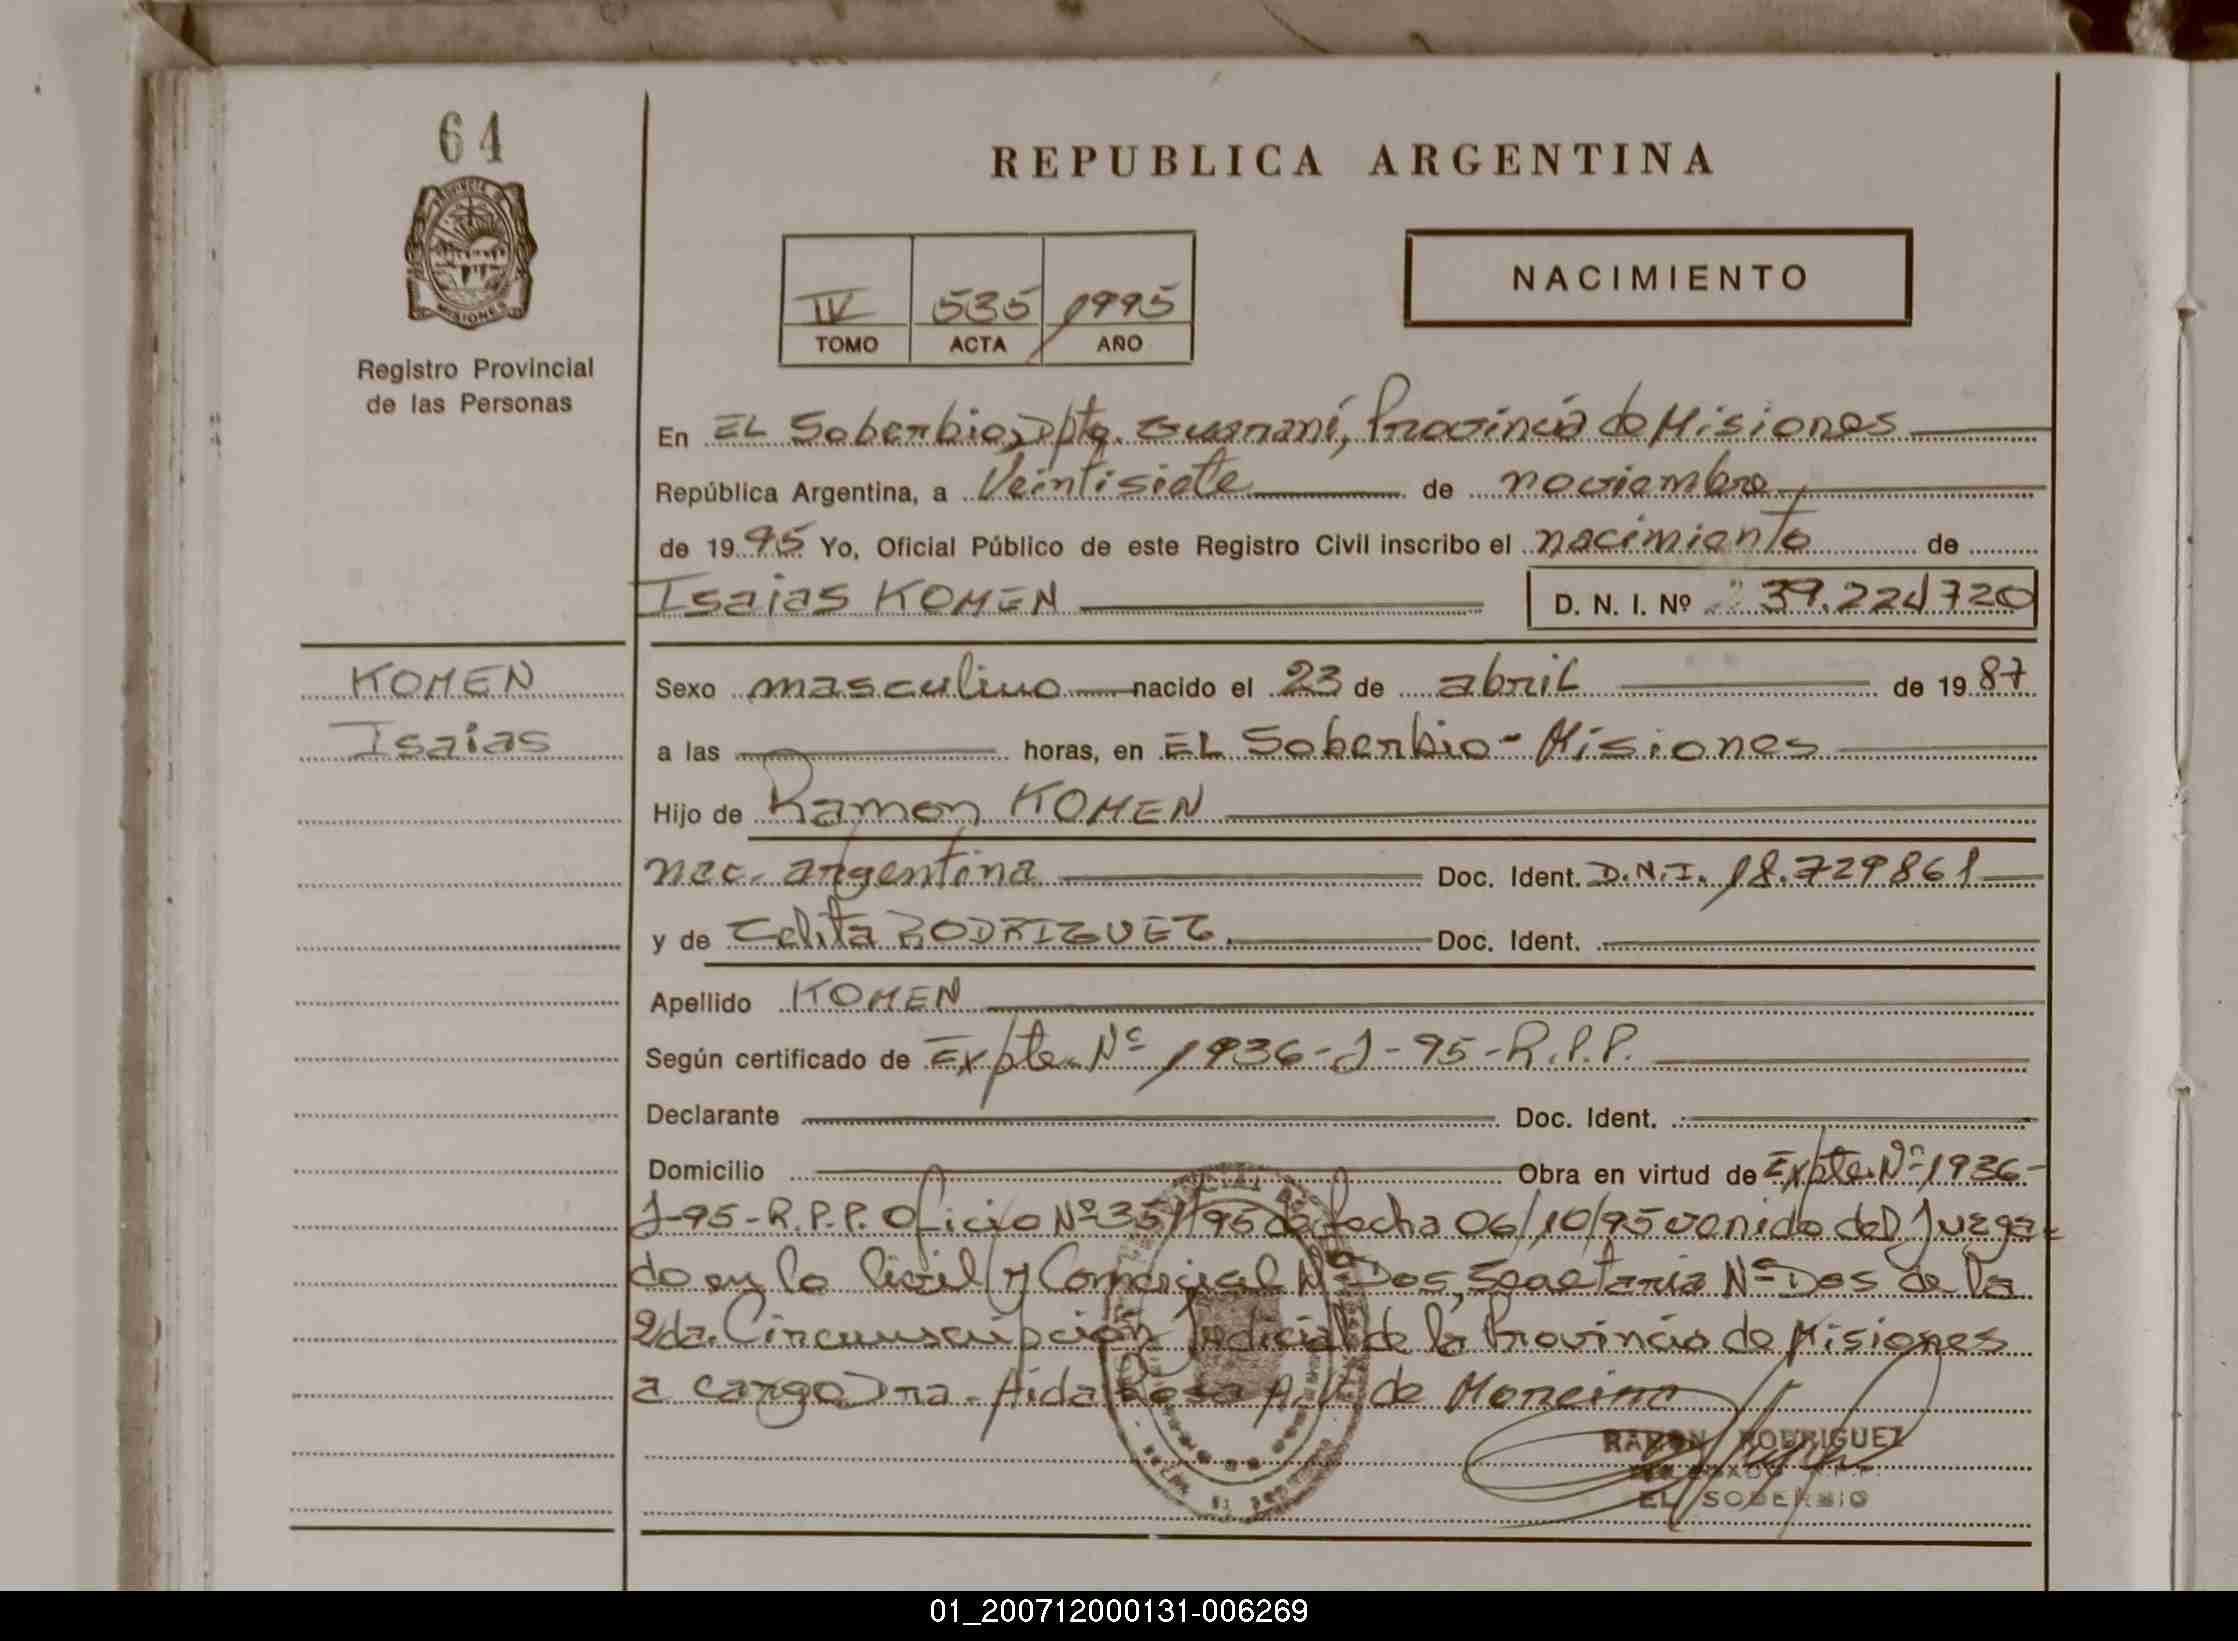 64
PROVINCIA DE
MISIONES
Registro Provincial
de las Personas
REPUBLICA ARGENTINA
NACIMIENTO
IV 535 1995
TOMO ACTA AÑO
En EL Soberbio, Dpto. Guaraní, Provincia de Misiones
República Argentina, a Veintisiete de noviembre
de 1995 Yo, Oficial Público de este Registro Civil inscribo el nacimiento de
Isaias KOMEN D. N. I. Nº 39.224720
KOMEN
Isaias
Sexo masculino nacido el 23 de abril de 1987
a las horas, en EL Soberbio - Misiones
Hijo de Ramon KOMEN
nac. argentina Doc. Ident. D.N.I. 18.729861
y de Celita RODRIGUEZ. Doc. Ident.
Apellido KOMEN
Según certificado de Expte. Nº 1936-J-95-R.P.P.
Declarante Doc. Ident.
Domicilio Obra en virtud de Expte. Nº 1936-
J-95-R.P.P. Oficio Nº 351/95 de fecha 06/10/95 venido del Juzga-
do en lo Civil y Comercial Nº Dos, Secretaria Nº Dos de la
2da. Circunscripción Judicial de la Provincia de Misiones
a cargo Dra. Aida Rosa de Moreira
RAMON RODRIGUEZ
R.P.P.
EL SOBERBIO
01_200712000131-006269